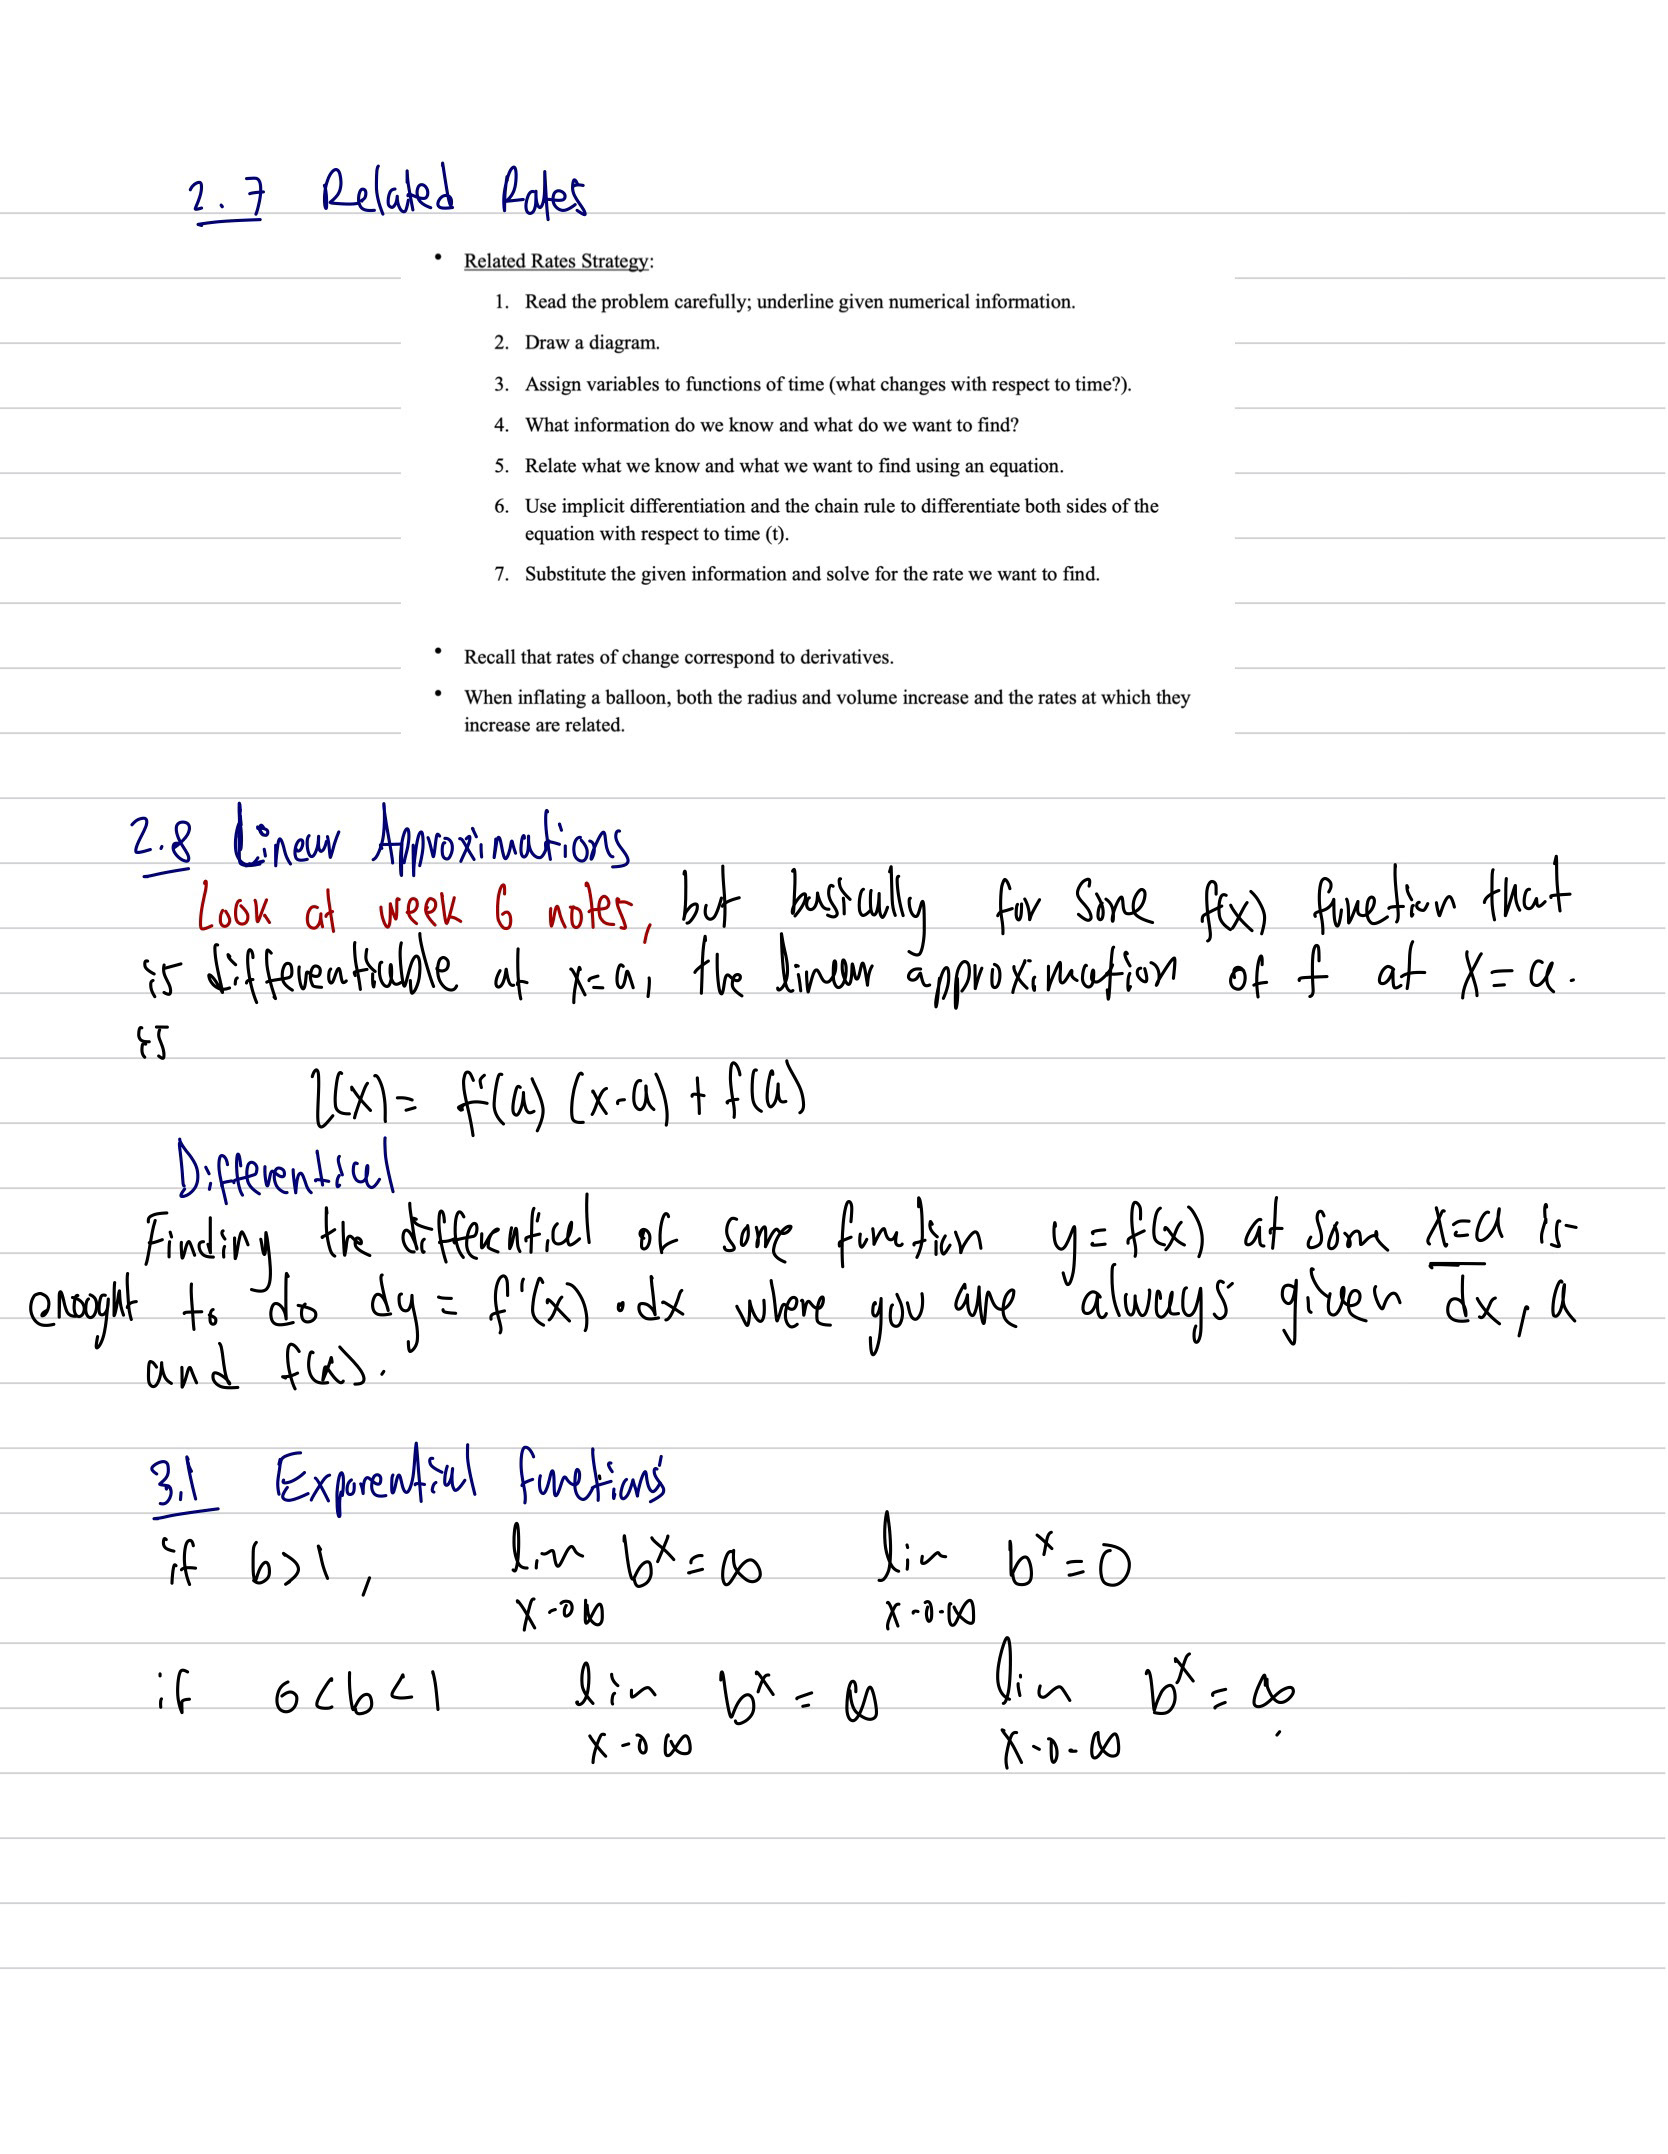 2.7 Related Rates
• Related Rates Strategy:
1. Read the problem carefully; underline given numerical information.
2. Draw a diagram.
3. Assign variables to functions of time (what changes with respect to time?).
4. What information do we know and what do we want to find?
5. Relate what we know and what we want to find using an equation.
6. Use implicit differentiation and the chain rule to differentiate both sides of the
equation with respect to time (t).
7. Substitute the given information and solve for the rate we want to find.
• Recall that rates of change correspond to derivatives.
• When inflating a balloon, both the radius and volume increase and the rates at which they
increase are related.
2.8 Linear Approximations
Look at week 6 notes, but basically for some f(x) function that
is differentiable at x=a, the linear approximation of f at x=a.
is
L(x)= f'(a) (x-a) + f(a)
Differential
Finding the differential of some function y=f(x) at some x=a is
enooght to do dy = f'(x) · dx where you are always given dx, a
and f(x).
3.1 Exponential functions
if b>1, lim b^x = ∞ lim b^x = 0
x→∞ x→-∞
if 0<b<1 lim b^x = ∞ lim b^x = ∞
x→∞ x→-∞